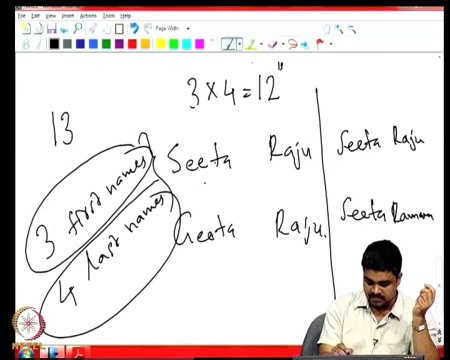 File Edit View Insert Actions Tools Help
Page Width
3 x 4 = 12
13
3 first names
4 last names
Seeta Raju
Geeta Raju.
Seeta Raju
Seeta Ramana